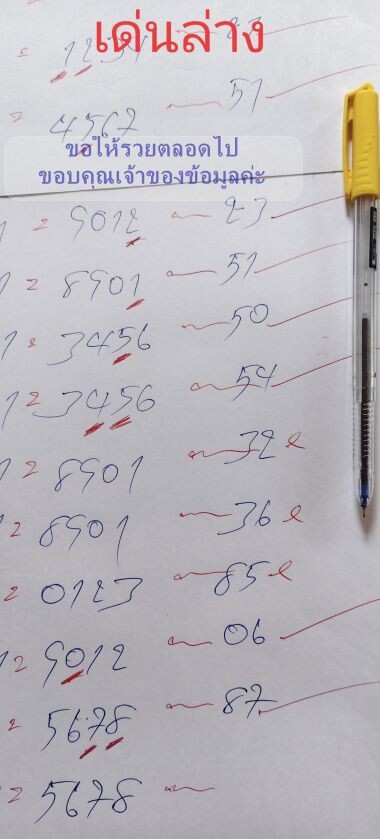 เด่นล่าง
= 1234 23
= 4567 51
ขอให้รวยตลอดไป
ขอบคุณเจ้าของข้อมูลค่ะ
1 = 9012 23
1 = 8901 51
1 = 3456 50
1 = 3456 54
1 = 8901 32
1 = 8901 36
= 0123 85
1 = 9012 06
= 5678 87
= 5678